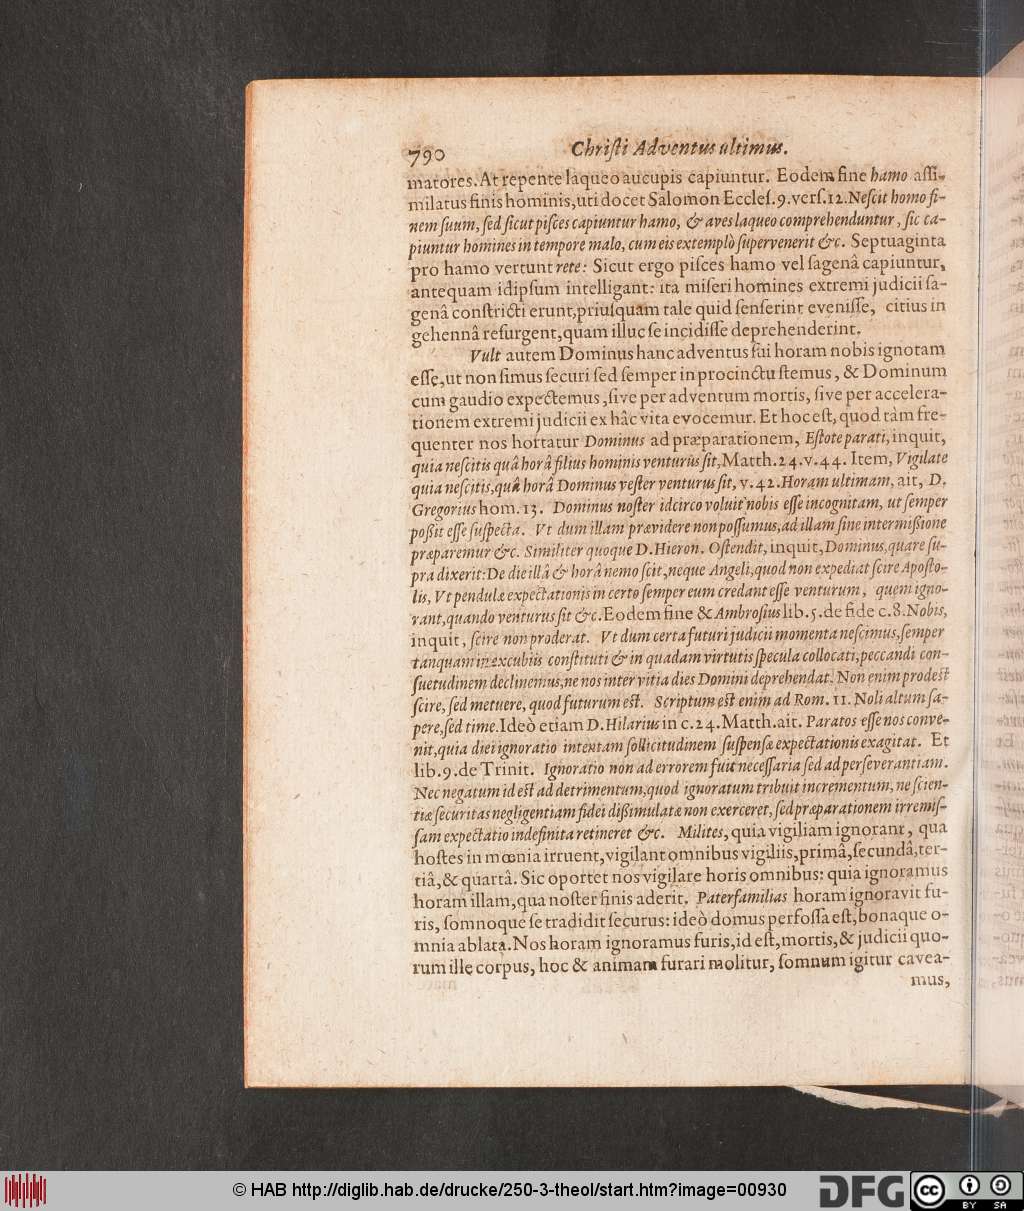 790 Chriſti Adventus ultimus.
matores. At repente laqueo aucupis capiuntur. Eodem fine hamo aſſi-
milatus finis hominis, uti docet Salomon Eccleſ. 9. verſ. 12. Neſcit homo fi-
nem ſuum, ſed ſicut piſces capiuntur hamo, & aves laqueo comprehenduntur, ſic ca-
piuntur homines in tempore malo, cum eis extemplò ſupervenerit &c. Septuaginta
pro hamo vertunt rete: Sicut ergo piſces hamo vel ſagenâ capiuntur,
antequam idipſum intelligant: ita miſeri homines extremi judicii ſa-
genâ conſtricti erunt, priuſquam tale quid ſenſerint eveniſſe, citius in
gehennâ reſurgent, quam illuc ſe incidiſſe deprehenderint.
Vult autem Dominus hanc adventus ſui horam nobis ignotam
eſſe, ut non ſimus ſecuri ſed ſemper in procinctu ſtemus, & Dominum
cum gaudio expectemus, ſive per adventum mortis, ſive per accelera-
tionem extremi judicii ex hâc vita evocemur. Et hoc eſt, quod tàm fre-
quenter nos hortatur Dominus ad præparationem, Eſtote parati, inquit,
quia neſcitis quâ horâ filius hominis venturus ſit, Matth. 24. v. 44. Item, Vigilate
quia neſcitis, quâ horâ Dominus veſter venturus ſit, v. 42. Horam ultimam, ait, D.
Gregorius hom. 13. Dominus noſter idcirco voluit nobis eſſe incognitam, ut ſemper
poßit eſſe ſuſpecta. Vt dum illam prævidere non poſſumus, ad illam ſine intermißione
præparemur &c. Similiter quoque D. Hieron. Oſtendit, inquit, Dominus, quare ſu-
pra dixerit: De die illâ & horâ nemo ſcit, neque Angeli, quod non expediat ſcire Apoſto-
lis, Vt pendulæ expectationis in certo ſemper eum credant eſſe venturum, quem igno-
rant, quando venturus ſit &c. Eodem fine & Ambroſius lib. 5. de fide c. 8. Nobis,
inquit, ſcire non proderat. Vt dum certa futuri judicii momenta neſcimus, ſemper
tanquam in excubiis conſtituti & in quadam virtutis ſpecula collocati, peccandi con-
ſuetudinem declinemus, ne nos inter vitia dies Domini deprehendat. Non enim prodeſt
ſcire, ſed metuere, quod futurum eſt. Scriptum eſt enim ad Rom. 11. Noli altum ſa-
pere, ſed time. Ideò etiam D. Hilarius in c. 24. Matth. ait. Paratos eſſe nos conve-
nit, quia diei ignoratio intentam ſollicitudinem ſuſpenſæ expectationis exagitat. Et
lib. 9. de Trinit. Ignoratio non ad errorem fuit neceſſaria ſed ad perſeverantiam.
Nec negatum id eſt ad detrimentum, quod ignoratum tribuit incrementum, ne ſcien-
tiæ ſecuritas negligentiam fidei dißimulatæ non exerceret, ſed præparationem irremiſ-
ſam expectatio indefinita retineret &c. Milites, quia vigiliam ignorant, qua
hoſtes in mœnia irruent, vigilant omnibus vigiliis, primâ, ſecundâ, ter-
tiâ, & quartâ. Sic oportet nos vigilare horis omnibus: quia ignoramus
horam illam, qua noſter finis aderit. Paterfamilias horam ignoravit fu-
ris, ſomnoque ſe tradidit ſecurus: ideò domus perfoſſa eſt, bonaque o-
mnia ablata. Nos horam ignoramus furis, id eſt, mortis, & judicii quo-
rum ille corpus, hoc & animam furari molitur, ſomnum igitur cavea-
mus,
© HAB http://diglib.hab.de/drucke/250-3-theol/start.htm?image=00930
DFG
cc BY SA